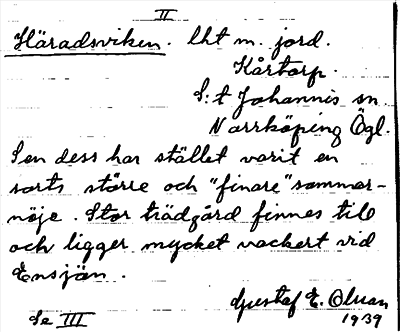 II
Häradsviken. lht m. jord.
Kårtorp.
S:t Johannis sn
Norrköping Ögl.
Sen dess har stället varit en
sorts större och "finare" sommar-
nöje. Stor trädgård finnes till
och ligger mycket vackert vid
Ensjön.
Gustaf E. Olsson
Se III 1939